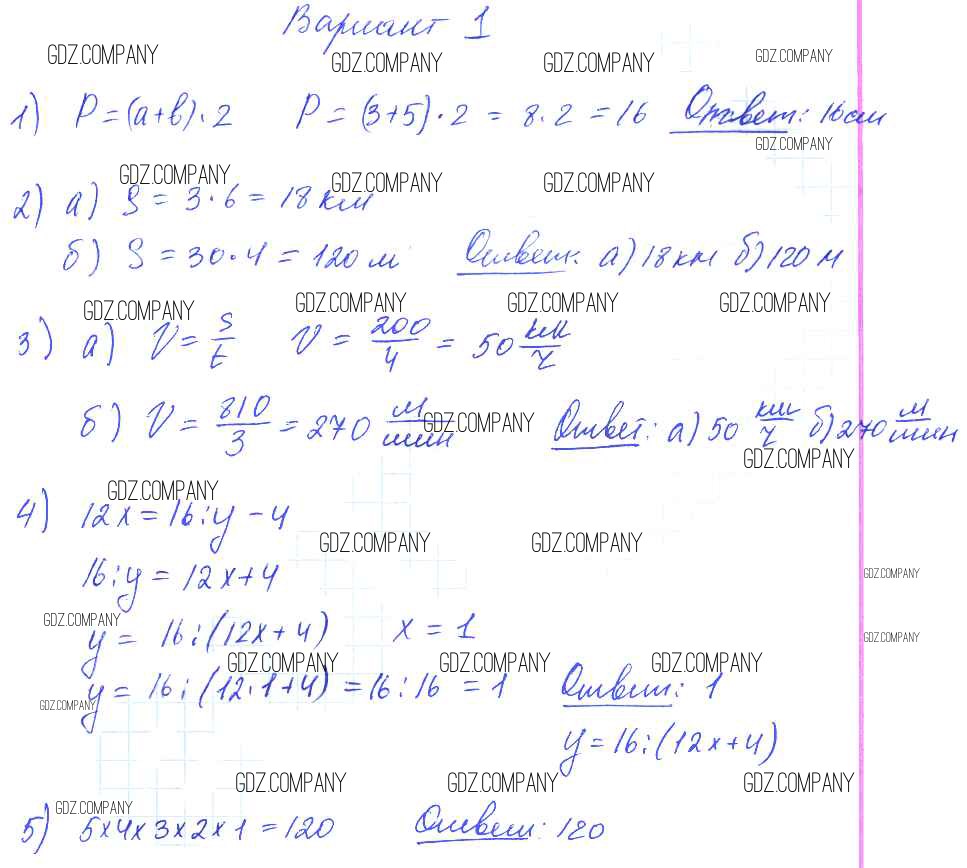 Вариант 1
GDZ.COMPANY GDZ.COMPANY GDZ.COMPANY GDZ.COMPANY
1) P = (a+b)·2 P = (3+5)·2 = 8·2 = 16 Ответ: 16 см
GDZ.COMPANY
GDZ.COMPANY GDZ.COMPANY GDZ.COMPANY
2) а) S = 3·6 = 18 км
б) S = 30·4 = 120 м Ответ: а) 18 км б) 120 м
GDZ.COMPANY GDZ.COMPANY GDZ.COMPANY GDZ.COMPANY
3) а) V = s/t V = 200/4 = 50 км/ч
б) V = 810/3 = 270 м/мин GDZ.COMPANY Ответ: а) 50 км/ч б) 270 м/мин
GDZ.COMPANY
GDZ.COMPANY
4) 12x = 16:y - 4
GDZ.COMPANY GDZ.COMPANY
16:y = 12x+4
GDZ.COMPANY
GDZ.COMPANY
y = 16:(12x+4) x = 1
GDZ.COMPANY
GDZ.COMPANY GDZ.COMPANY GDZ.COMPANY
y = 16:(12·1+4) = 16:16 = 1 Ответ: 1
GDZ.COMPANY
y = 16:(12x+4)
GDZ.COMPANY GDZ.COMPANY GDZ.COMPANY
GDZ.COMPANY
5) 5×4×3×2×1 = 120 Ответ: 120